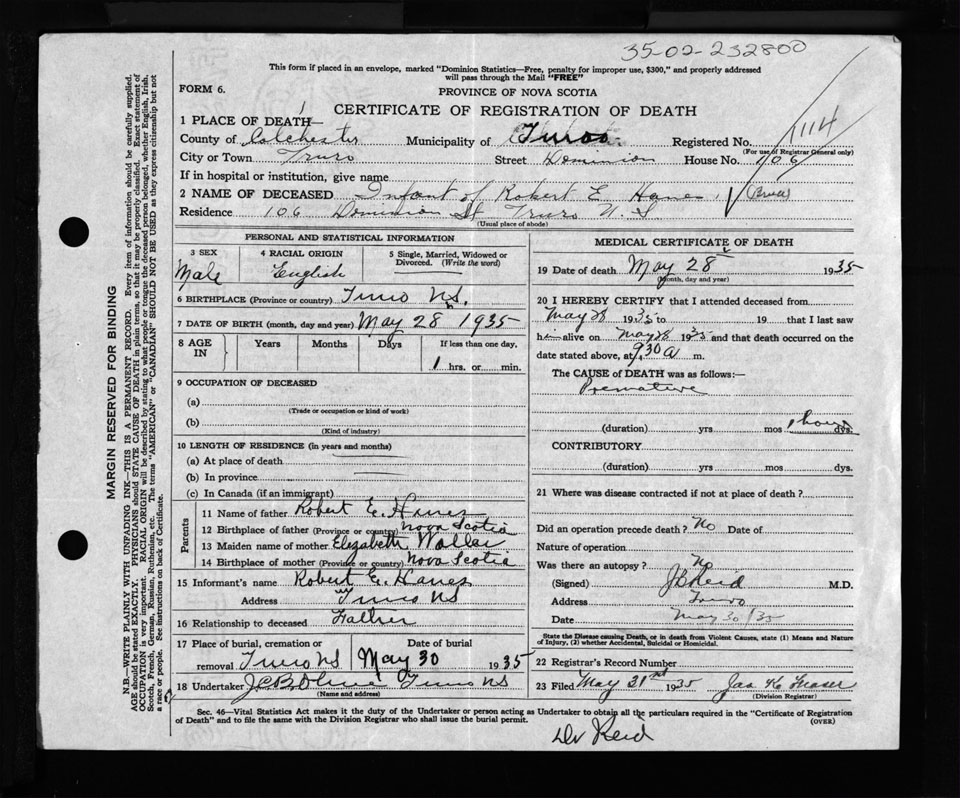 35-02-232800
This form if placed in an envelope, marked "Dominion Statistics—Free, penalty for improper use, $300," and properly addressed
will pass through the Mail "FREE"
FORM 6.
PROVINCE OF NOVA SCOTIA
CERTIFICATE OF REGISTRATION OF DEATH
1 PLACE OF DEATH—
County of Colchester Municipality of Truro Registered No. 1114
(For use of Registrar General only)
City or Town Truro Street Dominion House No. 106
If in hospital or institution, give name
2 NAME OF DECEASED Infant of Robert E. Hanes
Residence 106 Dominion St Truro N. S
(Usual place of abode)
PERSONAL AND STATISTICAL INFORMATION
3 SEX Male
4 RACIAL ORIGIN English
5 Single, Married, Widowed or
Divorced. (Write the word)
6 BIRTHPLACE (Province or country) Truro N.S.
7 DATE OF BIRTH (month, day and year) May 28 1935
8 AGE IN Years Months Days If less than one day,
1 hrs. or min.
9 OCCUPATION OF DECEASED
(a)
(Trade or occupation or kind of work)
(b)
(Kind of industry)
10 LENGTH OF RESIDENCE (in years and months)
(a) At place of death
(b) In province
(c) In Canada (if an immigrant)
Parents
11 Name of father Robert E. Hanes
12 Birthplace of father (Province or country) Nova Scotia
13 Maiden name of mother Elizabeth
14 Birthplace of mother (Province or country) Nova Scotia
15 Informant's name Robert E. Hanes
Address Truro NS
16 Relationship to deceased Father
17 Place of burial, cremation or Date of burial
removal Truro NS May 30 1935
18 Undertaker Truro NS
(Name and address)
MEDICAL CERTIFICATE OF DEATH
19 Date of death May 28 1935
(Month, day and year)
20 I HEREBY CERTIFY that I attended deceased from
May 28 1935 to 19 that I last saw
him alive on May 28 1935 and that death occurred on the
date stated above, at 930 a m.
The CAUSE of DEATH was as follows:—
Premature
(duration) yrs mos 1 hour dys.
CONTRIBUTORY
(duration) yrs mos dys.
21 Where was disease contracted if not at place of death?
Did an operation precede death? No Date of
Nature of operation
Was there an autopsy? No
(Signed) Reid M.D.
Address Truro
Date May 30/35
State the Disease causing Death, or in death from Violent Causes, state (1) Means and Nature
of Injury, (3) whether Accidental, Suicidal or Homicidal.
22 Registrar's Record Number
23 Filed May 31st 1935 Jas K Fraser
(Division Registrar)
Sec. 46—Vital Statistics Act makes it the duty of the Undertaker or person acting as Undertaker to obtain all the particulars required in the "Certificate of Registration
of Death" and to file the same with the Division Registrar who shall issue the burial permit.
(OVER)
Dr Reid
MARGIN RESERVED FOR BINDING
N.B.—WRITE PLAINLY WITH UNFADING INK—THIS IS A PERMANENT RECORD. Every item of information should be carefully supplied.
AGE should be stated EXACTLY. PHYSICIANS should STATE CAUSE OF DEATH in plain terms, so that it may be properly classified. Exact statement of
OCCUPATION is very important. RACIAL ORIGIN will be described by stating to what people or tongue the deceased person belonged, whether English, Irish,
Scotch, French, German, Russian, Ruthenian, etc. The terms "AMERICAN" or "CANADIAN" SHOULD NOT BE USED as they express citizenship but not
a race or people. See instructions on back of Certificate.